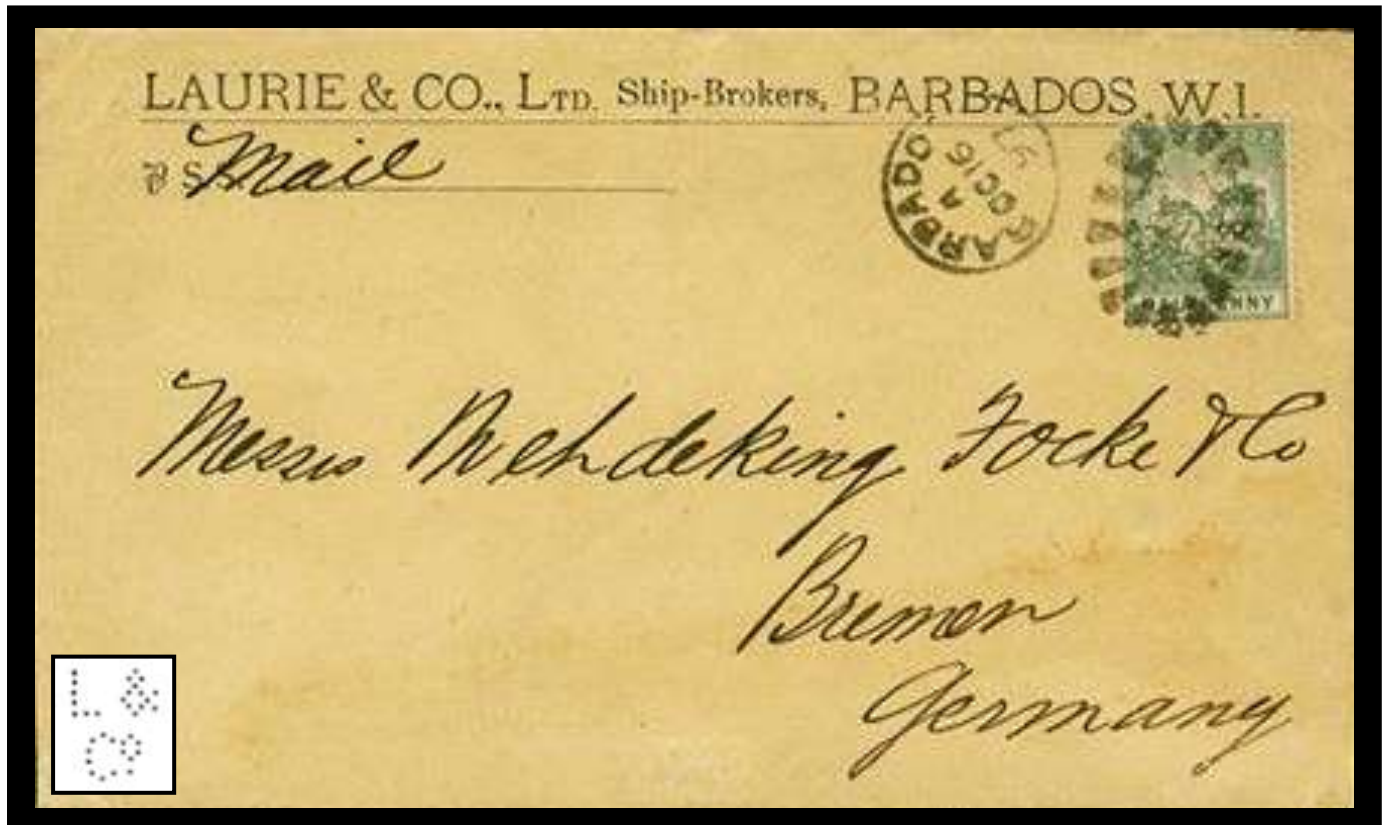 LAURIE & CO., LTD. Ship-Brokers, BARBADOS, W.I.
Mail
BARBADO
A
OC 16
97
HALFPENNY
Messrs Wehdeking Focke & Co
Bremen
Germany
L &
Co